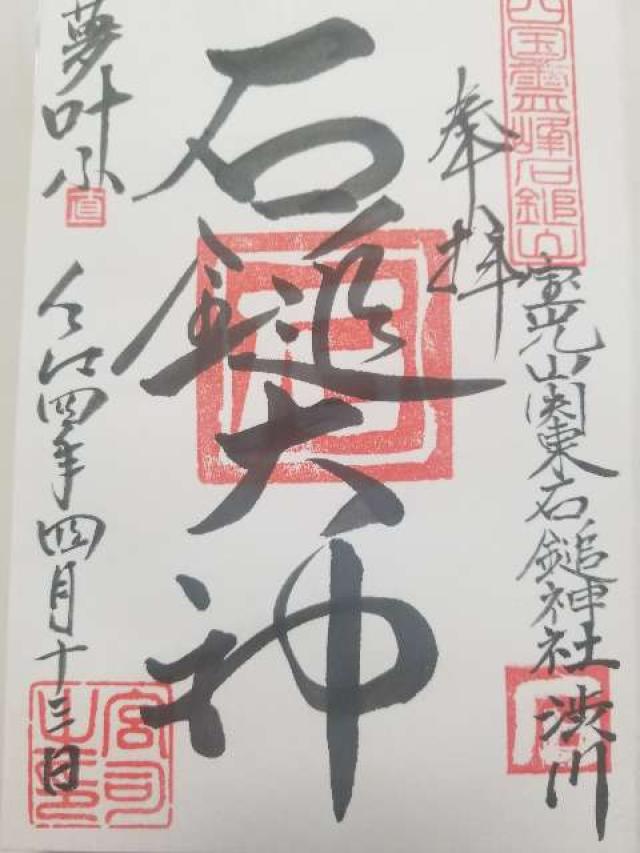 四国霊峰石鎚山
奉拝
宝光山関東石鎚神社
渋川
石鎚大神
夢叶ふ
令和四年四月十三日
宮司之印